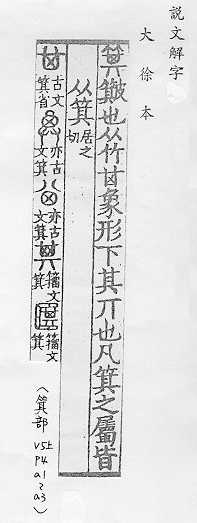 說文解字
大徐本
箕簸也从竹𠀠象形下其丌也凡箕之屬皆
从箕居之切
古文箕省
亦古文箕
亦古文箕
籀文箕
籀文箕
(箕部 v5上 P4 a1 a3)